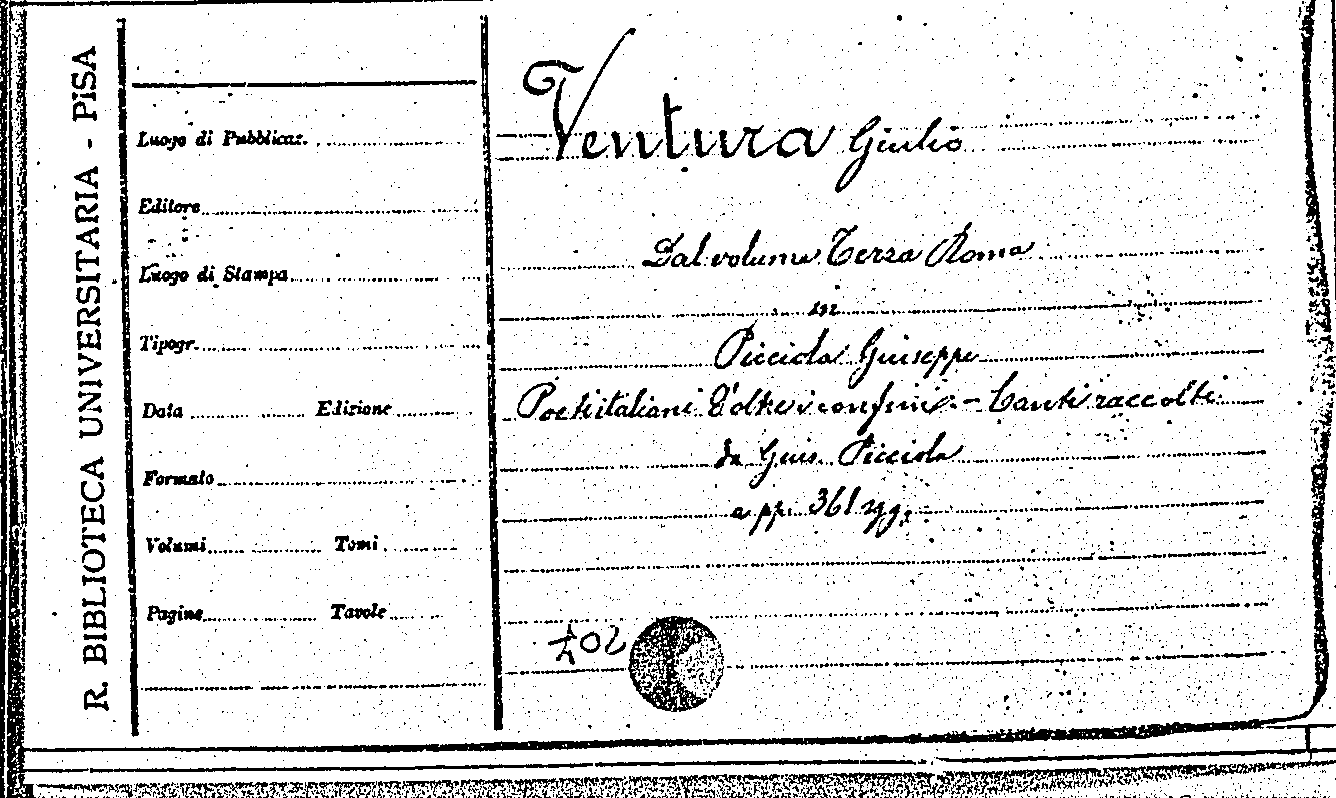 R. BIBLIOTECA UNIVERSITARIA - PISA
Luogo di Pubblicaz.
Editore
Luogo di Stampa
Tipogr.
Data Edizione
Formato
Volumi Tomi
Pagine Tavole
Ventura Giulio
Dal volume Terza Roma
in
Picciola Giuseppe
Poeti italiani d'oltre i confini. - Canti raccolti
da Gius. Picciola
a pp. 361 sgg.